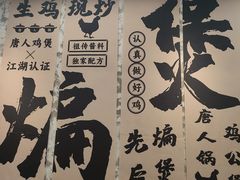 生鸡现炒
唐人鸡煲
×
江湖认证
祖传酱料
独家配方
煸
认真做好鸡
煲
火
先
后
煸
煲
唐人锅
鸡公煲